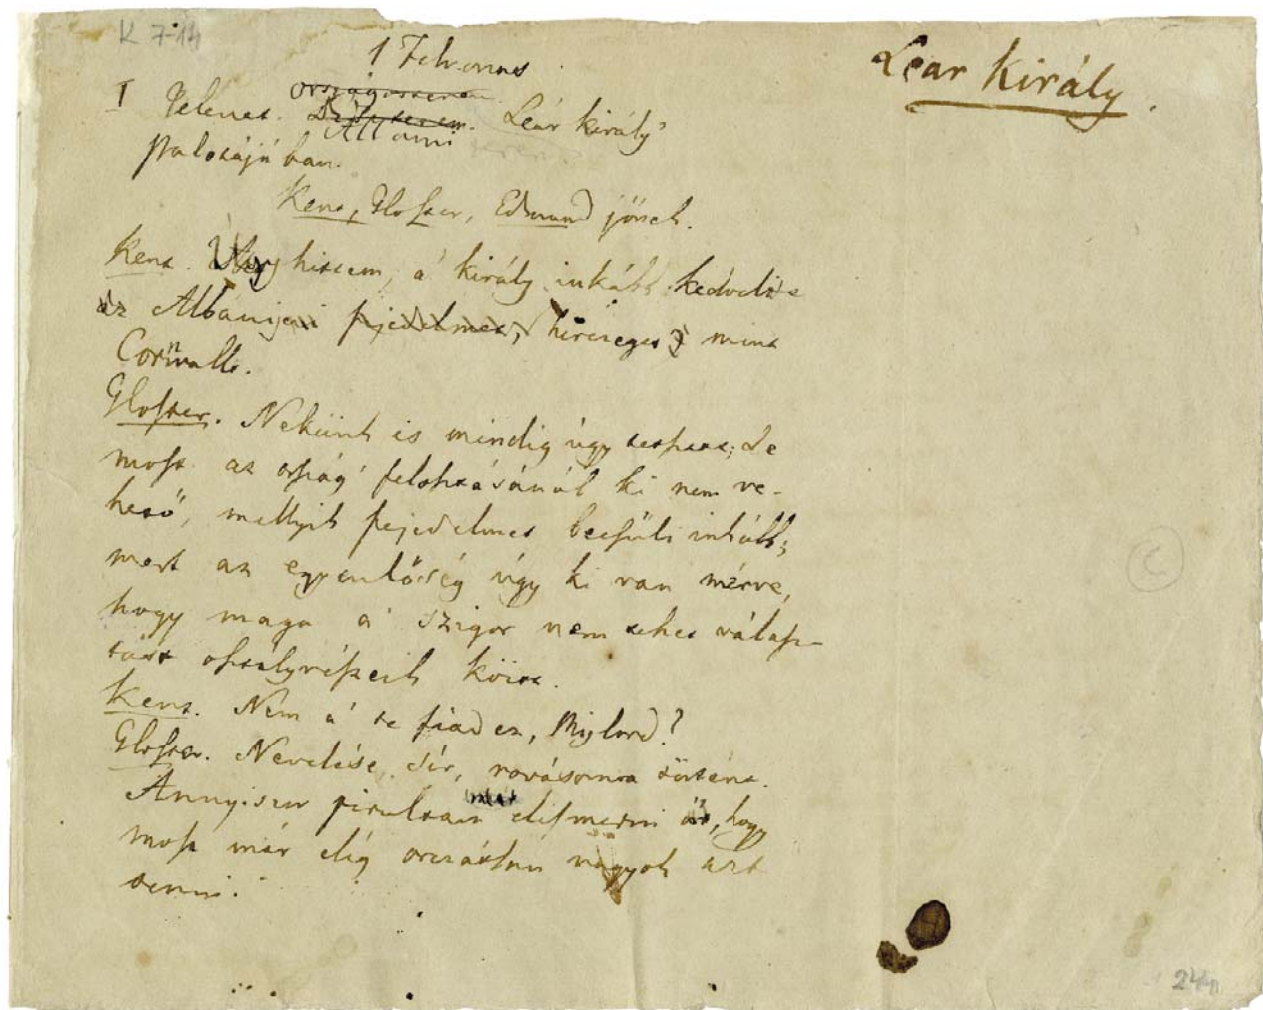 K 7-14
Lear király.
1 Felvonás
országterem
I Jelenet. Állami terem. Leár király'
Palotájában.
Kent, Gloster, Edmund jőnek.
Kent. Úgy hittem, a' király inkább kedveli
az Albániai fejedelmet, herczeget, mint
Cornwallt.
Gloster. Nekünk is mindig úgy tetszett; de
most az ország' felosztásánál ki nem ve-
hető, mellyik fejedelmet becsüli inkább;
mert az egyenlőség úgy ki van mérve,
hogy maga a' szigor nem tehet válasz-
tást osztályrészeik közt.
Kent. Nem a' te fiad ez, Mylord?
Gloster. Nevelése, Sir, rovásomra történt.
Annyiszor pirultam miatt elismerni őt, hogy
most már elég orczátlan vagyok azt
tenni.
244